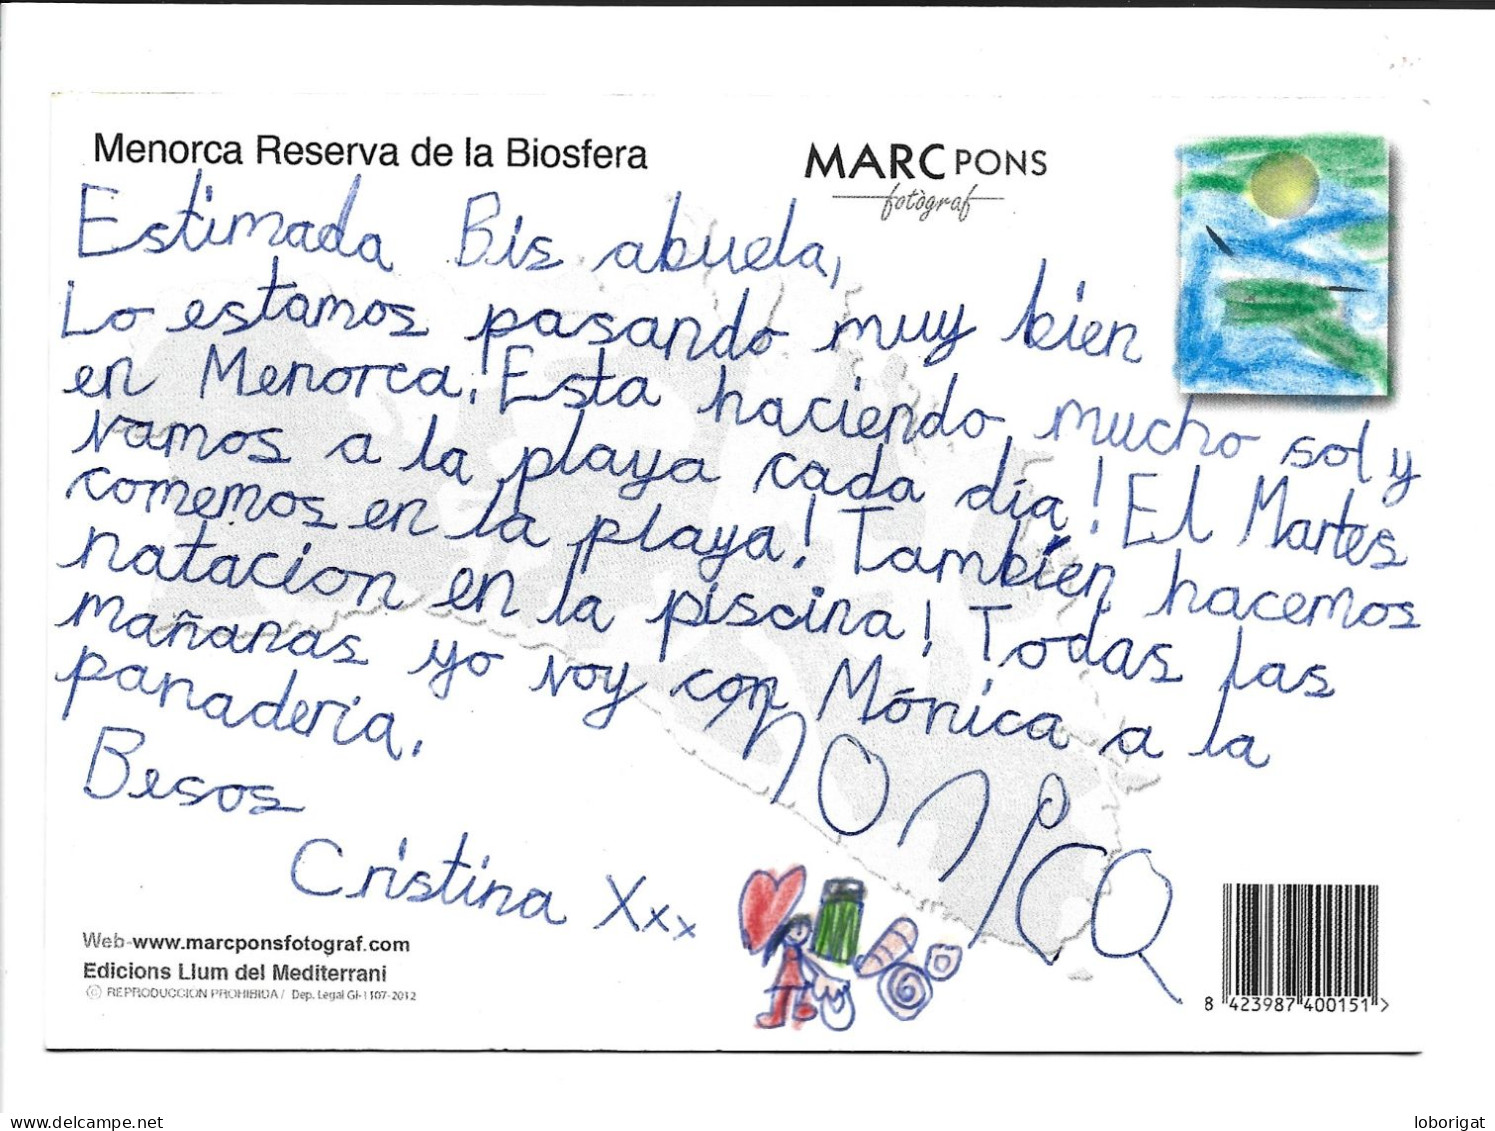 Menorca Reserva de la Biosfera
MARC PONS
fotògraf
Estimada Bis abuela,
Lo estamos pasando muy bien
en Menorca. Esta haciendo mucho sol y
vamos a la playa cada día! El Martes
comemos en la playa! También hacemos
natacion en la piscina! Todas las
mañanas yo voy con Mónica a la
panaderia.
Besos
Cristina Xxx
monica
Web-www.marcponsfotograf.com
Edicions Llum del Mediterrani
© REPRODUCCION PROHIBIDA / Dep. Legal GI-1107-2012
8 423987 400151 >
www.delcampe.net
loborigat